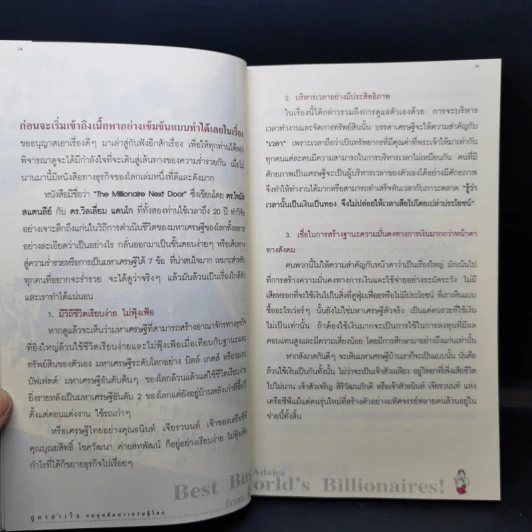 ก่อนจะเริ่มเข้าถึงเนื้อหาอย่างเข้มข้นแบบทำได้เลยในเรื่อง
ขออนุญาตเอาเรื่องดีๆ มาเล่าสู่กันฟังอีกสักเรื่อง เพื่อให้ทุกท่านได้
พิจารณาดูจะได้มีกำลังใจที่จะเดินสู่เส้นทางของความร่ำรวยกัน เมื่อไม่
นานมานี้มีหนังสือทางธุรกิจของโลกเล่มหนึ่งที่ดีและดังมาก
หนังสือมีชื่อว่า "The Millionaire Next Door" ซึ่งเขียนโดย ดร.โทมัส
สแตนลีย์ กับ ดร.วิลเลี่ยม แดนโก ที่ทั้งสองท่านใช้เวลาถึง 20 ปี ทำวิจัย
อย่างเจาะลึกถึงแก่นในวิถีการดำเนินชีวิตของมหาเศรษฐีของโลกทั้งหลาย
อย่างละเอียดว่าเป็นอย่างไร กลั่นออกมาเป็นขั้นตอนง่ายๆ หรือเส้นทาง
สู่ความร่ำรวยหรือการเป็นเศรษฐีได้ 7 ข้อ ที่น่าสนใจมาก เหมาะสำหรับ
ทุกคนที่อยากจะร่ำรวย จะได้ดูว่าจริงๆ แล้วมันล้วนเป็นเรื่องใกล้ตัว
และเราทำได้แน่นอน
1. มีวิถีชีวิตเรียบง่าย ไม่ฟุ้งเฟ้อ
หากดูแล้วจะเห็นว่ามหาเศรษฐีที่สามารถสร้างอาณาจักรทางธุรกิจ
ที่ยิ่งใหญ่ล้วนใช้ชีวิตเรียบง่ายและไม่ฟุ้งเฟ้อเมื่อเทียบกับฐานะและ
ทรัพย์สินของตัวเอง มหาเศรษฐีระดับโลกอย่าง บิลล์ เกตส์ หรือวอเรน
บัฟเฟตต์ มหาเศรษฐีอันดับต้นๆ ของโลกล้วนแล้วแต่ใช้ชีวิตเรียบง่าย
ยิ่งรายหลังเป็นมหาเศรษฐีอันดับ 2 ของโลกแต่ยังอยู่บ้านหลังเก่าที่ซื้อไว้
ตั้งแต่ตอนแต่งงาน ใช้รถเก่าๆ
หรือเศรษฐีไทยอย่างคุณธนินท์ เจียรวนนท์ เจ้าของเครือซีพี
คุณบุณยสิทธิ์ โชควัฒนา ค่ายสหพัฒน์ ก็อยู่อย่างเรียบง่าย ไม่ฟุ้งเฟ้อ
กำไรที่ได้ก็ขยายธุรกิจไปเรื่อยๆ
สูตรสำเร็จ กลยุทธ์มหาเศรษฐีโลก
2. บริหารเวลาอย่างมีประสิทธิภาพ
ในเรื่องนี้ได้กล่าวรวมถึงการดูแลตัวเองด้วย การจะบริหาร
เวลาทำงานและจัดการทรัพย์สินนั้น บรรดาเศรษฐีจะให้ความสำคัญกับ
"เวลา" เพราะเวลาถือว่าเป็นทรัพยากรที่มีคุณค่าที่พระเจ้าให้มาเท่าๆ กัน
ทุกคนแต่ละคนมีความสามารถในการบริหารเวลาไม่เหมือนกัน คนที่มี
ศักยภาพเป็นเศรษฐีจะเป็นผู้บริหารเวลาของตัวเองได้อย่างมีศักยภาพ
จึงทำให้ทำงานได้มากหรือสามารถทำเสร็จทันเวลากับภาวะตลาด "รู้ว่า
เวลานั้นเป็นเงินเป็นทอง จึงไม่ปล่อยให้เวลาเสียไปโดยเปล่าประโยชน์"
3. เชื่อในการสร้างฐานะความมั่นคงทางการเงินมากกว่าหน้าตา
ทางสังคม
คนพวกนี้ไม่ให้ความสำคัญกับหน้าตาว่าเป็นเรื่องใหญ่ มักเน้นไป
ที่การสร้างความมั่นคงทางการเงินและใช้จ่ายอย่างระมัดระวัง ไม่มี
เสียหรอกที่จะใช้เงินไปในสิ่งที่ฟุ่มเฟือยหรือไม่มีประโยชน์ ที่เราเห็นแบบ
ซื้ออะไรเว่อร์ๆ นั้นยังไม่ใช่มหาเศรษฐีตัวจริง เป็นแค่คนรวยที่ใช้เงิน
ไม่เป็นเท่านั้น ถ้าต้องใช้เงินมากจะเป็นการใช้ในการลงทุนที่มีผล
ตอบแทนสูงและมีความเสี่ยงน้อย โดยมีการศึกษามาอย่างถี่ถ้วนก่อนแล้ว
หากสังเกตกันดีๆ จะเห็นมหาเศรษฐีบ้านเราก็จะเป็นแบบนั้น นับถือ
ล้วนใช้เงินเป็นกันทั้งนั้น ไม่ว่าจะเป็นเจ้าสัวเฉลียว อยู่วิทยาที่เพิ่งเสียชีวิต
ไปไม่นาน เจ้าสัวเจริญ สิริวัฒนภักดี หรือเจ้าสัวธนินท์ เจียรวนนท์ แห่ง
เครือซีพีแม้แต่คนรุ่นใหม่ที่สร้างตัวอย่างมหัศจรรย์หลายคนล้วนอยู่ใน
ข่ายนี้ทั้งสิ้น
Advice
Best Bus World's Billionaires!
from